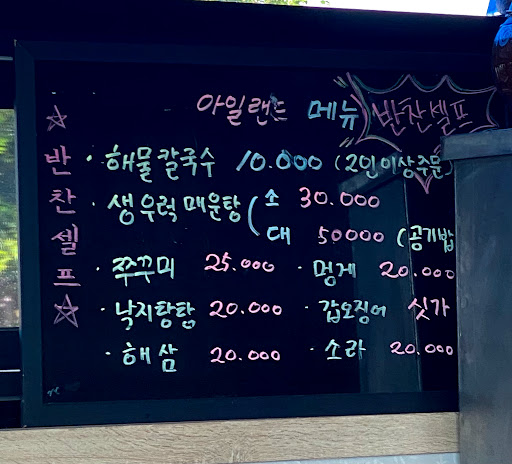 아일랜드 메뉴 반찬셀프
☆반찬셀프☆
· 해물칼국수 10.000 (2인이상주문)
· 생우럭매운탕 ( 소 30.000
대 50000 (공기밥
· 쭈꾸미 25.000 · 멍게 20.000
· 낙지탕탕 20.000 · 갑오징어 싯가
· 해삼 20.000 · 소라 20.000